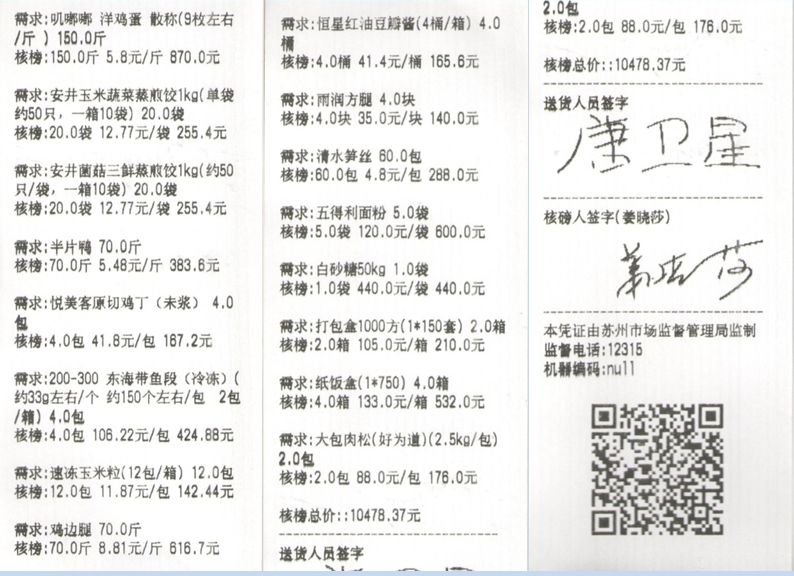 需求:叽嘟嘟 洋鸡蛋 散称(9枚左右
/斤 ) 150.0斤
核榜:150.0斤 5.8元/斤 870.0元
需求:安井玉米蔬菜蒸煎饺1kg(单袋
约50只，一箱10袋) 20.0袋
核榜:20.0袋 12.77元/袋 255.4元
需求:安井菌菇三鲜蒸煎饺1kg(约50
只/袋，一箱10袋) 20.0袋
核榜:20.0袋 12.77元/袋 255.4元
需求:半片鸭 70.0斤
核榜:70.0斤 5.48元/斤 383.6元
需求:悦美客原切鸡丁（未浆） 4.0
包
核榜:4.0包 41.8元/包 167.2元
需求:200-300 东海带鱼段（冷冻）(
约33g左右/个 约150个左右/包 2包
/箱) 4.0包
核榜:4.0包 106.22元/包 424.88元
需求:速冻玉米粒(12包/箱) 12.0包
核榜:12.0包 11.87元/包 142.44元
需求:鸡边腿 70.0斤
核榜:70.0斤 8.81元/斤 616.7元
需求:恒星红油豆瓣酱(4桶/箱) 4.0
桶
核榜:4.0桶 41.4元/桶 165.6元
需求:雨润方腿 4.0块
核榜:4.0块 35.0元/块 140.0元
需求:清水笋丝 60.0包
核榜:60.0包 4.8元/包 288.0元
需求:五得利面粉 5.0袋
核榜:5.0袋 120.0元/袋 600.0元
需求:白砂糖50kg 1.0袋
核榜:1.0袋 440.0元/袋 440.0元
需求:打包盒1000方(1*150套) 2.0箱
核榜:2.0箱 105.0元/箱 210.0元
需求:纸饭盒(1*750) 4.0箱
核榜:4.0箱 133.0元/箱 532.0元
需求:大包肉松(好为道)(2.5kg/包)
2.0包
核榜:2.0包 88.0元/包 176.0元
核榜总价::10478.37元
送货人员签字
2.0包
核榜:2.0包 88.0元/包 176.0元
核榜总价::10478.37元
送货人员签字
康卫星
核磅人签字(姜晓莎)
姜晓莎
本凭证由苏州市场监督管理局监制
监督电话:12315
机器编码:null